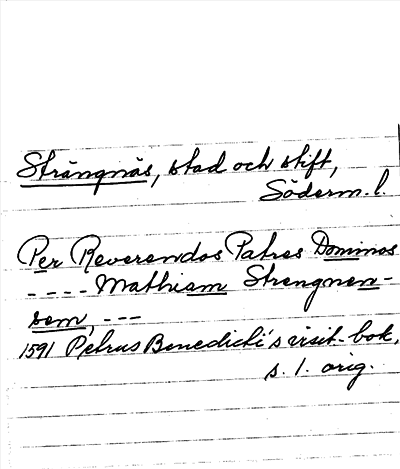 Strängnäs, stad och stift,
Söderm. l.
Per Reverendos Patres Dominos
---- Mathiam Strengnen-
sem, ---
1591 Petrus Benedicti's visit-bok,
s. 1. orig.